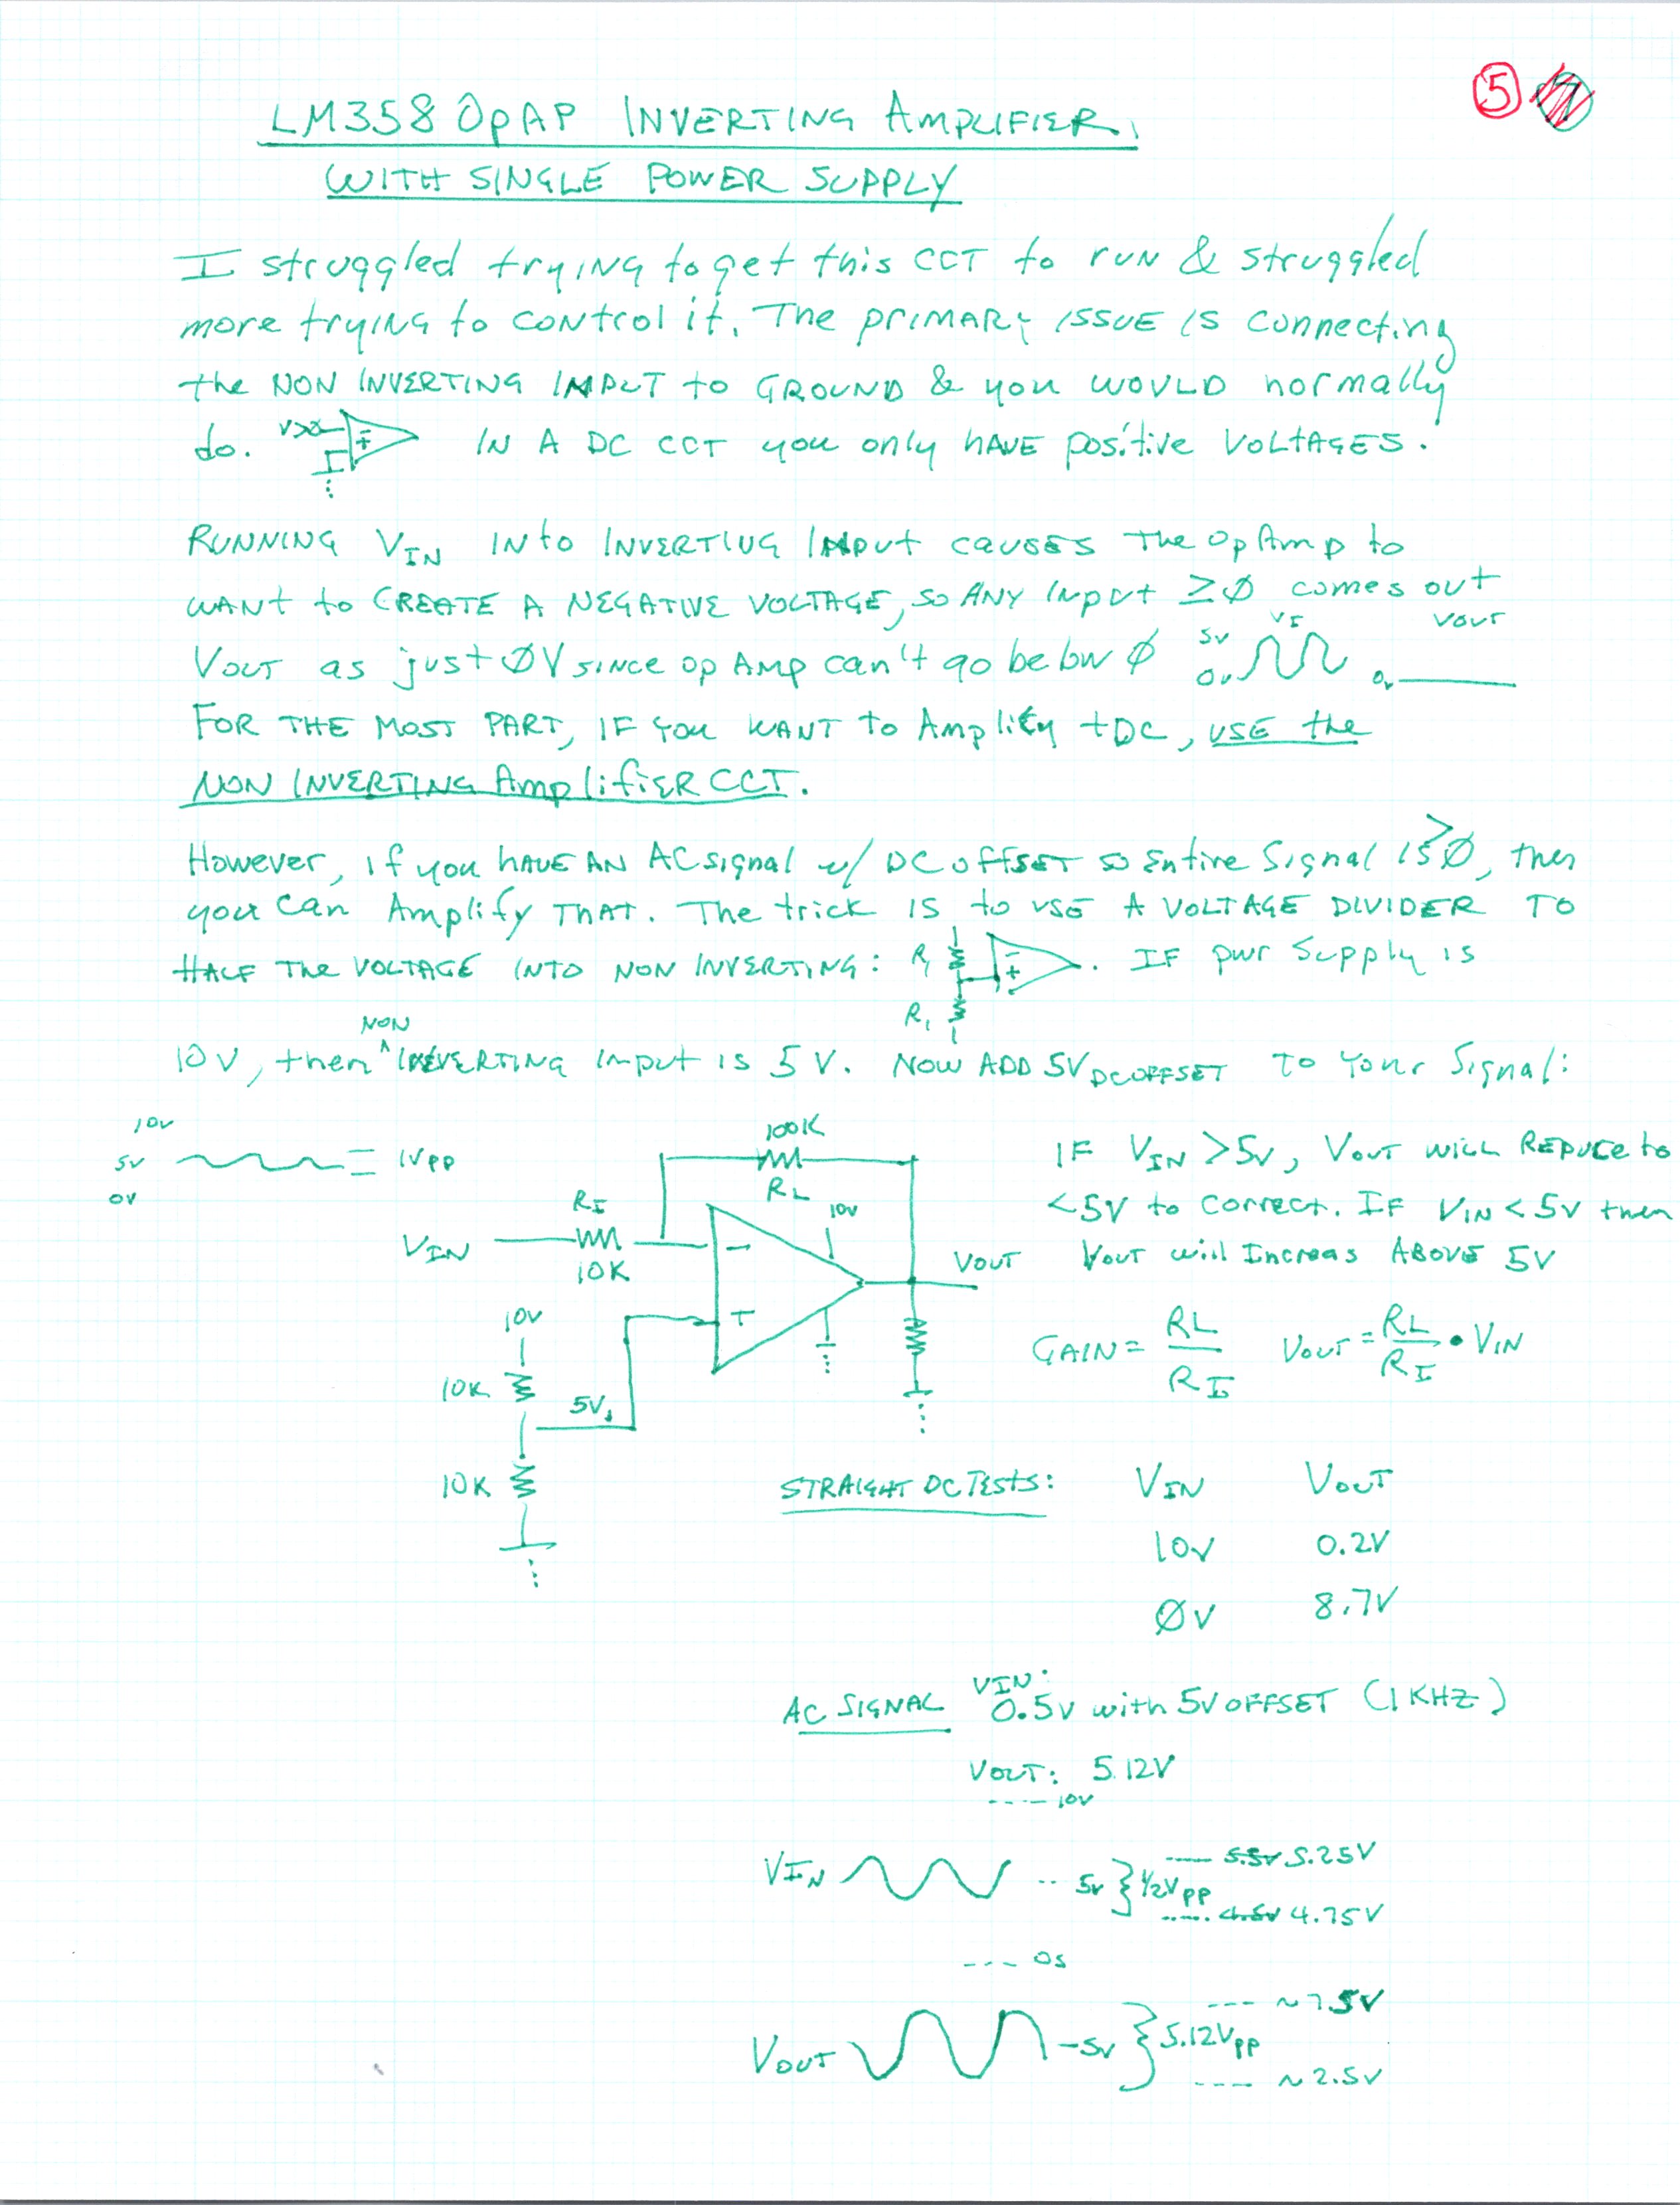 5
LM358 OpAP INVERTING AMPLIFIER
WITH SINGLE POWER SUPPLY
I struggled tryING to get this CCT to run & struggled
more tryING to control it. The PRIMARY ISSUE IS connecting
the NON INVERTING INPUT to GROUND & you WOULD normally
do. IN A DC CCT you only HAVE positive VOLTAGES.
RUNNING VIN INto INVERTING INput causes The OpAmp to
WANT to CREATE A NEGATIVE VOLTAGE, SO ANY Input ≥ Ø comes out
VOUT as just ØV SINCE op AMP can't go below Ø
5V VI VOUT
0V 0V
FOR THE MOST PART, IF you WANT to Amplify +DC, USE the
NON INVERTING AmplifiER CCT.
However, if you HAVE AN AC signal w/ DC OffSET so Entire Signal is >Ø, then
you can Amplify THAT. The trick IS to USE A VOLTAGE DIVIDER TO
HALF THE VOLTAGE INTO NON INVERTING: R1 - + . IF pwr Supply is
R1
10V, then NON INVERTING Input is 5V. NOW ADD 5V DCOFFSET TO Your Signal:
10V
5V 1VPP
0V
100K
RL
RI
10K
VIN
10V
VOUT
- +
10V
10K
5V
10K
IF VIN >5V, VOUT WILL REDUCE to
<5V to correct. IF VIN <5V then
VOUT will Increas ABOVE 5V
GAIN = RL / RI VOUT = RL / RI • VIN
STRAIGHT DC TESTS: VIN VOUT
10V 0.2V
ØV 8.7V
AC SIGNAL VIN: 0.5V with 5V OFFSET (1 KHZ)
VOUT: 5.12V
---- 10V
VIN -- 5V } 1/2VPP ---- 5.5V 5.25V
---- 4.5V 4.75V
--- 0s
VOUT -5V } 5.12VPP --- ~7.5V
---- ~2.5V